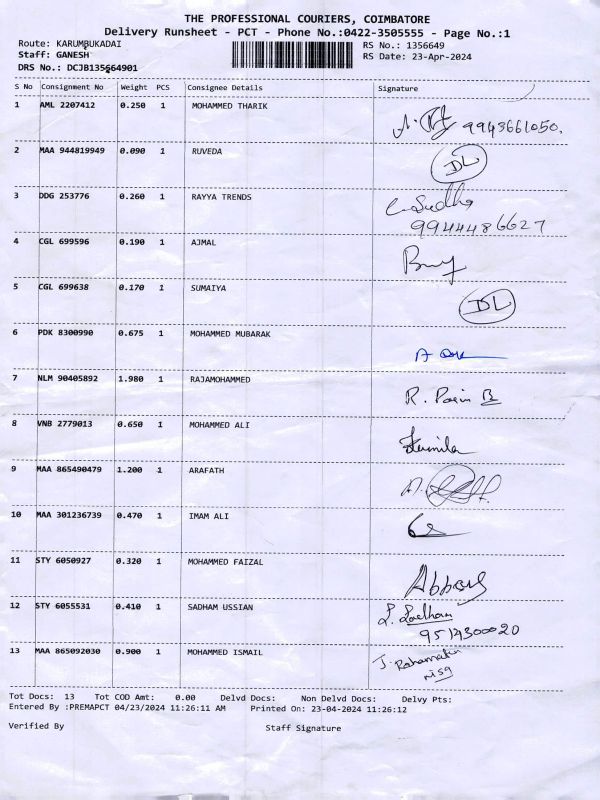 THE PROFESSIONAL COURIERS, COIMBATORE
Delivery Runsheet - PCT - Phone No.:0422-3505555 - Page No.:1
Route: KARUMBUKADAI RS No.: 1356649
Staff: GANESH RS Date: 23-Apr-2024
DRS No.: DCJB135664901
S No Consignment No Weight PCS Consignee Details Signature
1 AML 2207412 0.250 1 MOHAMMED THARIK
9943661050.
2 MAA 944819949 0.090 1 RUVEDA
DL
3 DDG 253776 0.260 1 RAYYA TRENDS
C. Sudha
9944486627
4 CGL 699596 0.190 1 AJMAL
5 CGL 699638 0.170 1 SUMAIYA
DL
6 PDK 8300990 0.675 1 MOHAMMED MUBARAK
7 NLM 90405892 1.980 1 RAJAMOHAMMED
R.
8 VNB 2779013 0.650 1 MOHAMMED ALI
9 MAA 865490479 1.200 1 ARAFATH
10 MAA 301236739 0.470 1 IMAM ALI
11 STY 6050927 0.320 1 MOHAMMED FAIZAL
Abbas
12 STY 6055531 0.410 1 SADHAM USSIAN
9514300020
13 MAA 865092030 0.900 1 MOHAMMED ISMAIL
J.
Tot Docs: 13 Tot COD Amt: 0.00 Delvd Docs: Non Delvd Docs: Delvy Pts:
Entered By :PREMAPCT 04/23/2024 11:26:11 AM Printed On: 23-04-2024 11:26:12
Verified By Staff Signature